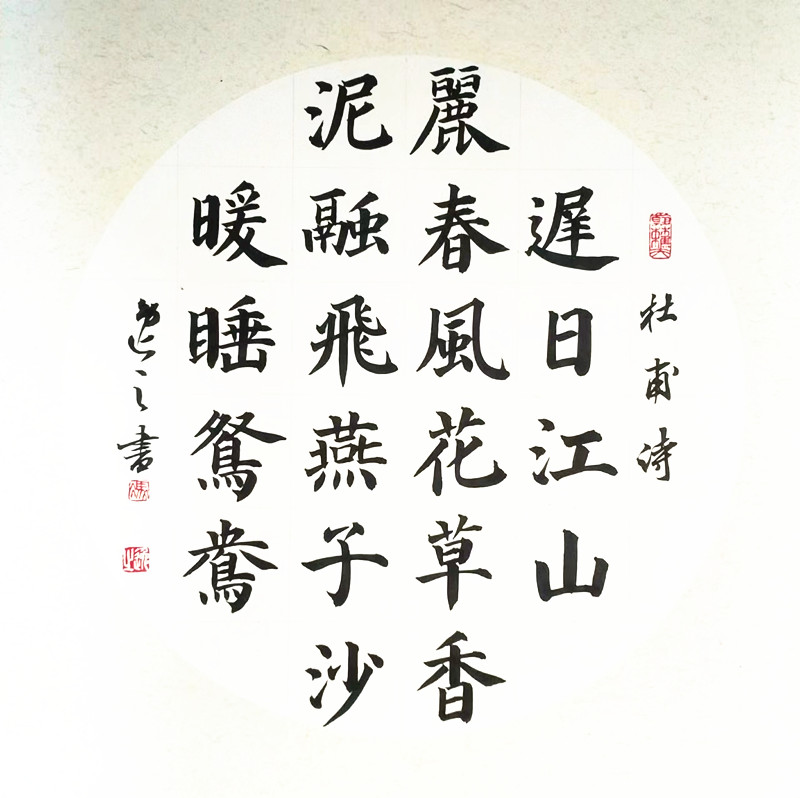 杜甫诗
遲日江山
麗春風花草香
泥融飛燕子沙
暖睡鴛鴦
之書